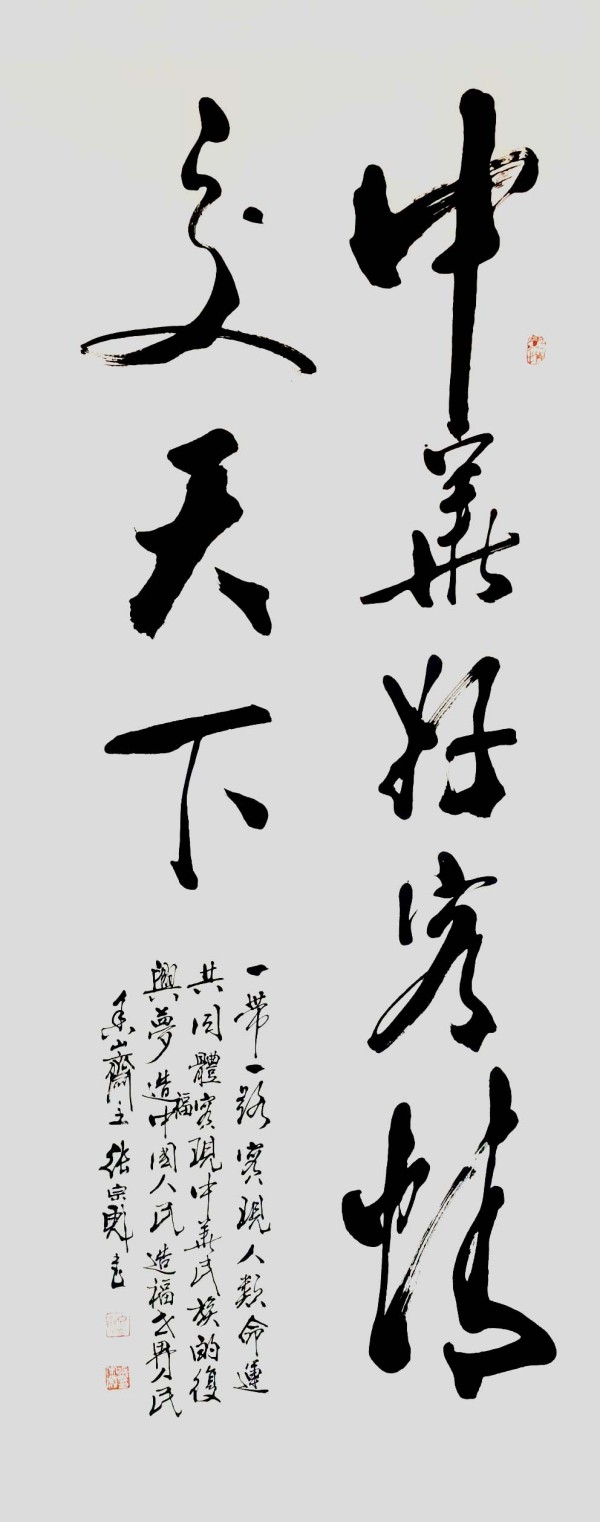 中華好客情
交天下
一帶一路實現人類命運
共同體實現中華民族的復
興夢造福中國人民造福世界人民
山齋主張宗彪書